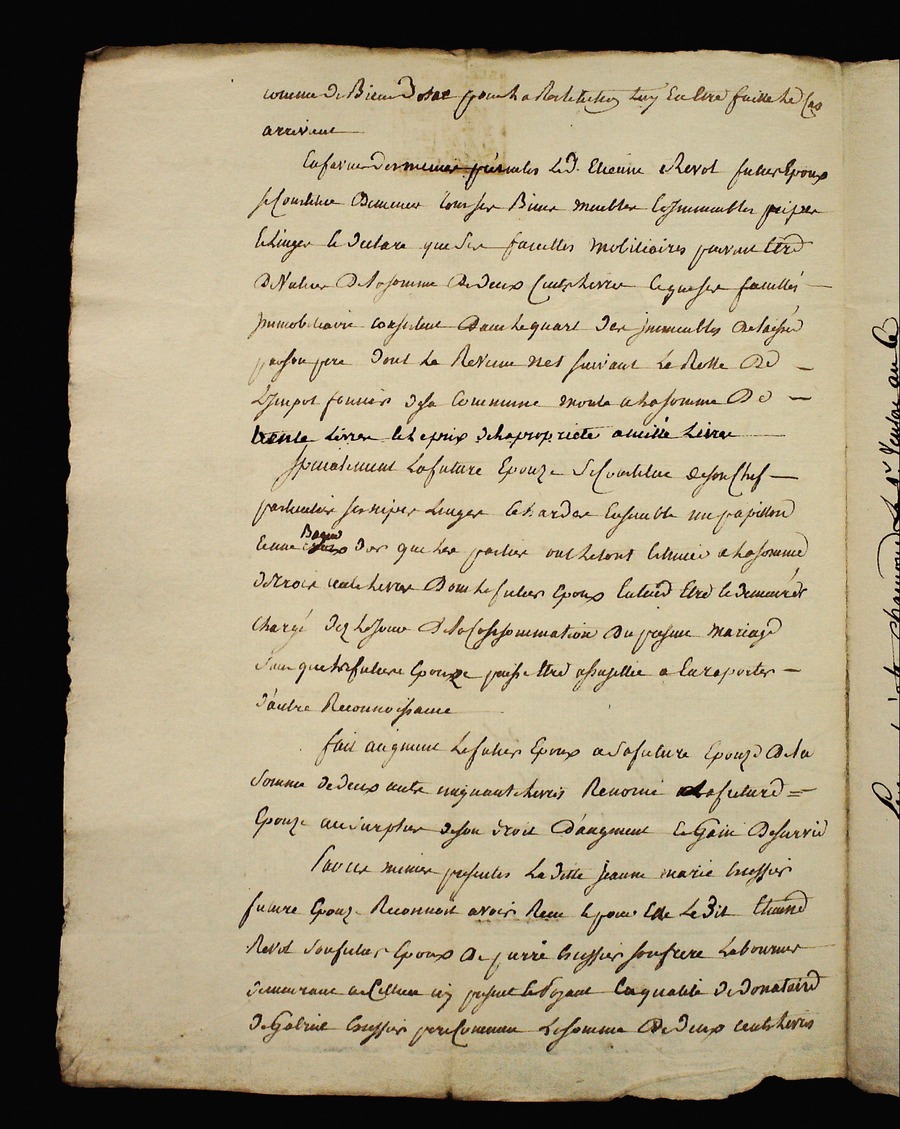 comme de Bien Dotal pour la Restitution luy En Etre faitte le Cas
arrivant
En faveur des memes présentes Led. Etienne Revol futur Epoux
se Constitue En tous ses Biens meubles Et Immeubles
Linges Et declare que ses facultés mobiliaires peuvent Etre
de Valeur De la somme De deux Cents Livres Et que ses facultés
Immobiliaire consistent Dans le quart Des immeubles Delaissé
par son pere Dont Le Revenu net suivant Le Rolle De
L'Impot foncier de la Commune monte a la somme De
trente Livres et le prix de la propriete a mille Livres
La future Epouze se Constitue de son Chef
particulier ses nipes Linges Et hardes Ensemble un papillon
Et une Bague D'or que les parties ont Estimé a la somme
de trois cents Livres Dont le futur Epoux Entend Etre Et demeurer
Chargé Dez le jour De la Consommation Du present mariage
sans que la future Epouze puisse Etre assujettie a En raporter
d'autre Reconnoissance
fait augment Le futur Epoux a sa future Epouze De la
somme de deux cents cinquante Livres a la future
Epouze au surplus de son droit D'augment Et Gain De survie
Par ces memes presentes La ditte jeanne marie
future Epouze Reconnoit avoir Recu Et pour Elle Le Dit Etienne
Revol son futur Epoux De pierre son frere Laboureur
demeurant a Cellieu icy present Et Payant En qualité de donataire
de Gabriel pere Commun La somme De deux cents Livres